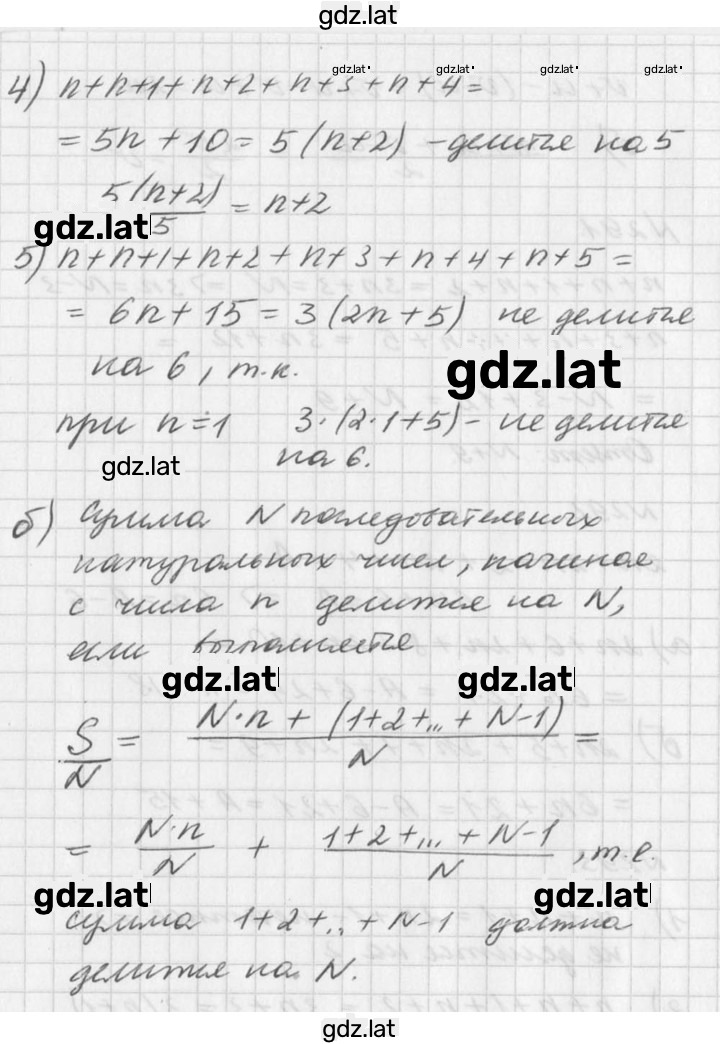 gdz.lat
gdz.lat gdz.lat gdz.lat gdz.lat
4) n+n+1+n+2+n+3+n+4=
=5n+10=5(n+2) -делится на 5
5(n+2)/5 = n+2
gdz.lat
5) n+n+1+n+2+n+3+n+4+n+5=
= 6n+15=3(2n+5) не делится
на 6, т.к.
gdz.lat
при n=1 3·(2·1+5)- не делится
на 6.
gdz.lat
б) Сумма N последовательных
натуральных чисел, начиная
с числа n делится на N,
если выполняется
gdz.lat gdz.lat
S/N = (N·n + (1+2+...+N-1))/N =
= N·n/N + (1+2+...+N-1)/N, т.е.
gdz.lat gdz.lat
сумма 1+2+..+N-1 должна
делится на N.
gdz.lat